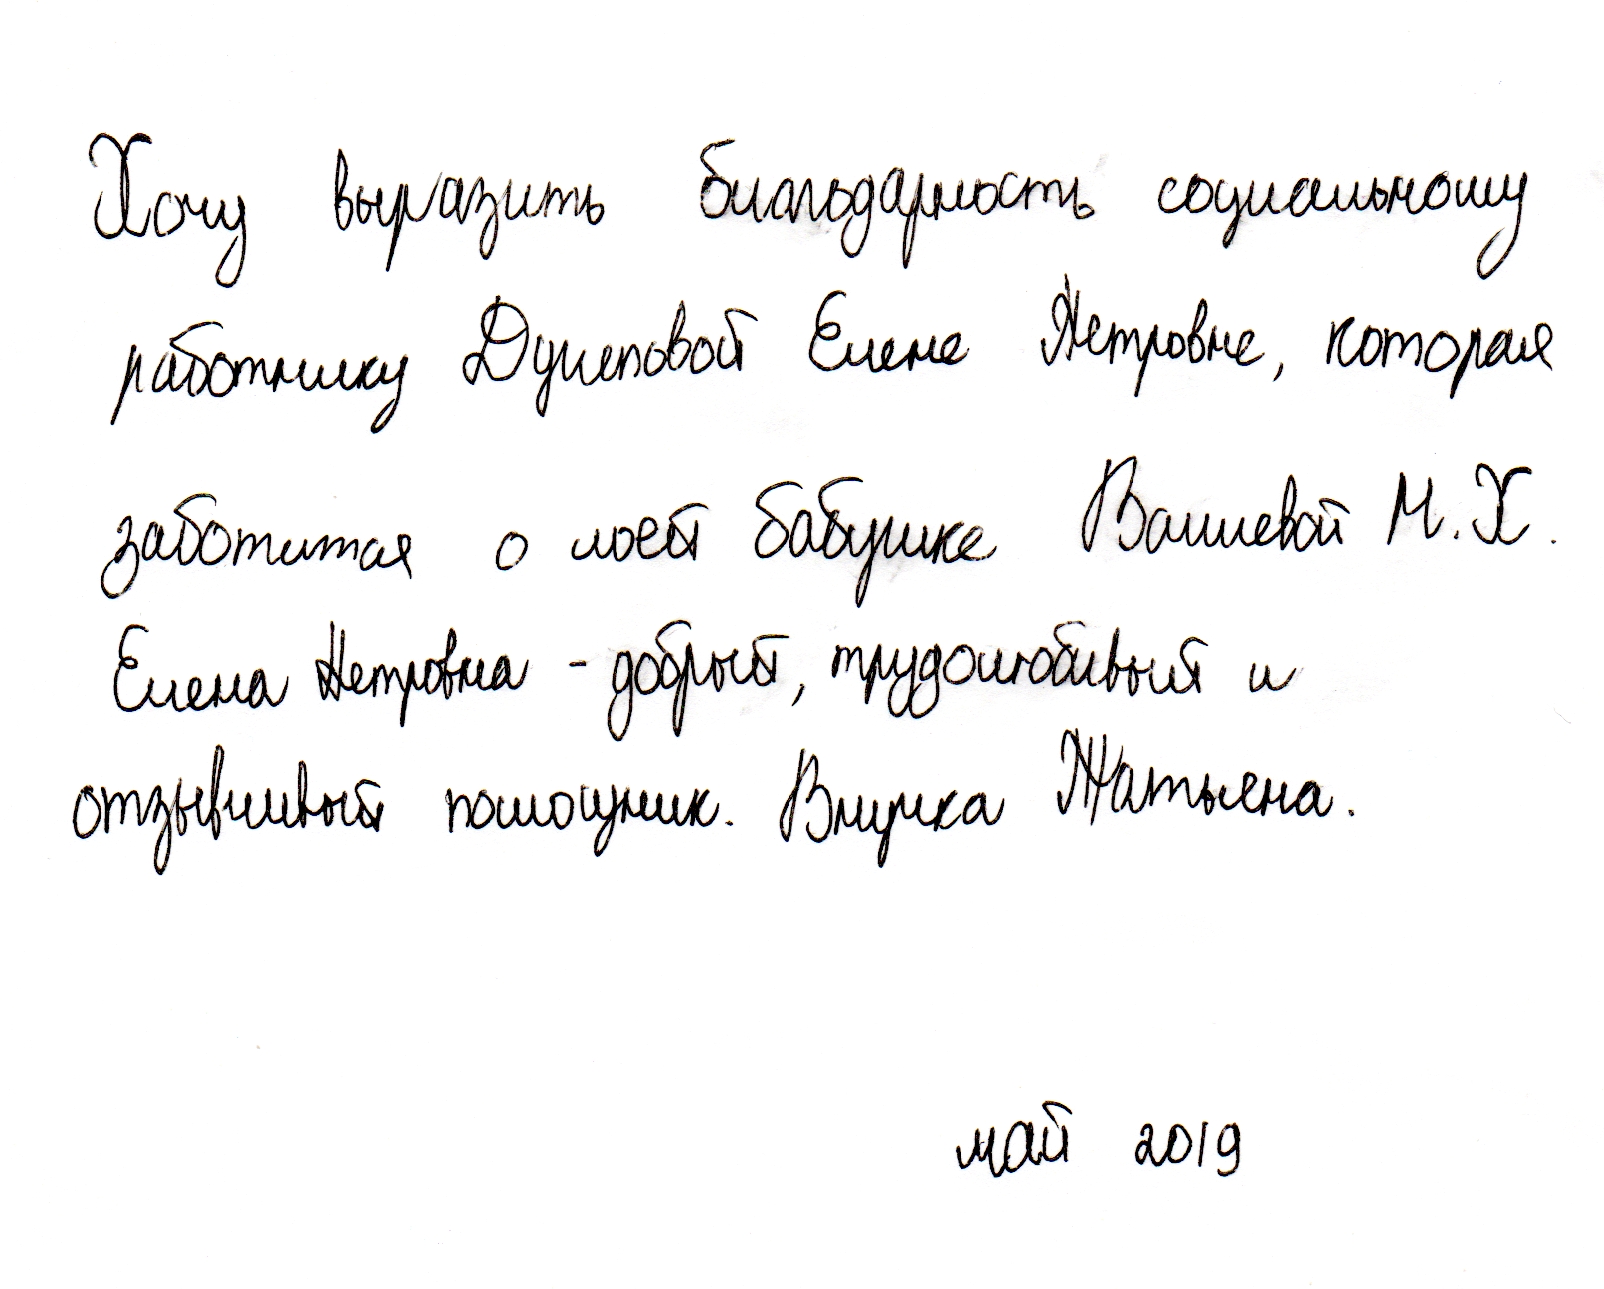 Хочу выразить благодарность социальному
работнику Елене Петровне, которая
заботится о моей бабушке М.Х.
Елена Петровна - добрый, трудолюбивый и
отзывчивый помощник. Внучка Татьяна.
май 2019